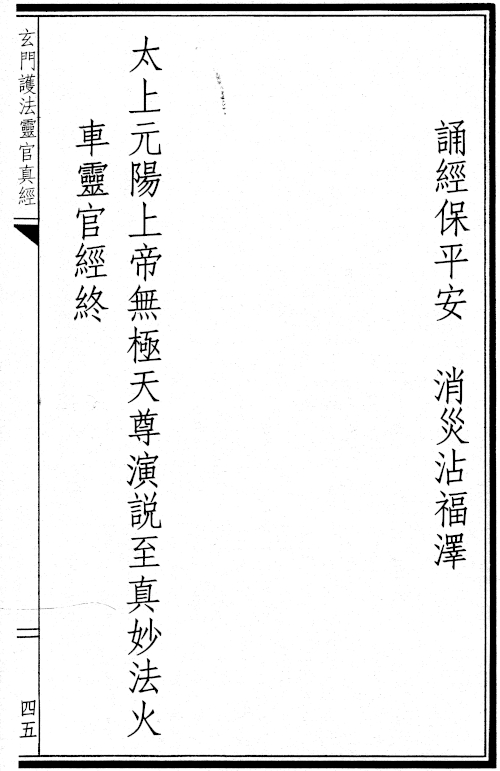 誦經保平安　消災沾福澤
太上元陽上帝無極天尊演説至真妙法火
車靈官經終
玄門護法靈官真經
四五